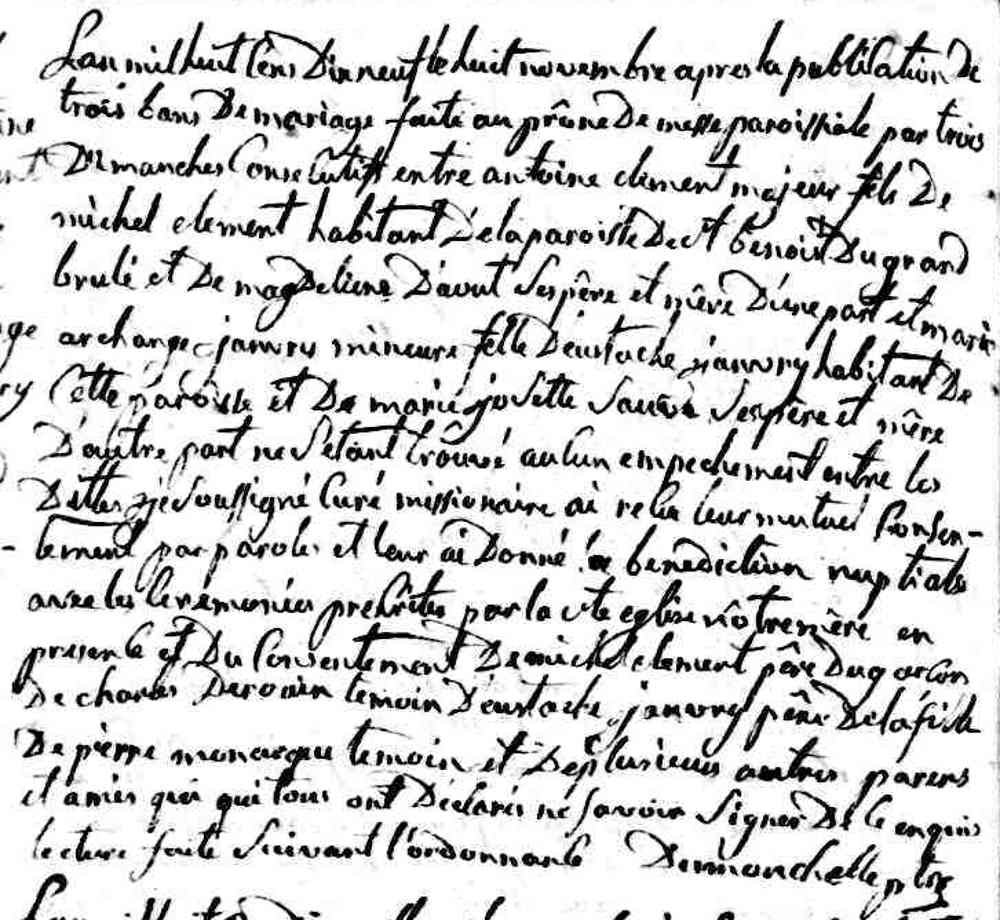 Lan mil huit cens Dix neuf le huit novembre apres la publication De
trois bans De mariage faite au prône De messe paroissiale par trois
Dimanches Consecutifs entre antoine clement majeur fils De
michel clement habitant Delaparoisse De st benoist Du grand
brulé et De magdeliene Davut Sespêre et mêre D'une part et marie
archange janvry mineure fille D'eustache janvry habitant De
Cette paroisse et De marie josette Sauvé Sespère et mêre
D'autre part ne S'etant trôuvé aucun empechement entre les
Dittes je Soussigné Curé missionaire ai reçu leur mutuel Consen-
-tement par paroles et leur ai Donné la benediction nuptiale
avec les Ceremonies prescrites par la ste eglise nôtre mère en
presence et Du Consentement De michel clement père Dugarcon
De charles Derouin temoin D'eustache janvry père Delafille
De pierre monarque temoin et De plusieurs autres parens
et amies qui qui tous ont Déclarés ne savoir Signer De ce enquis
lecture faite Suivant l'ordonnance Demonchelle ptre